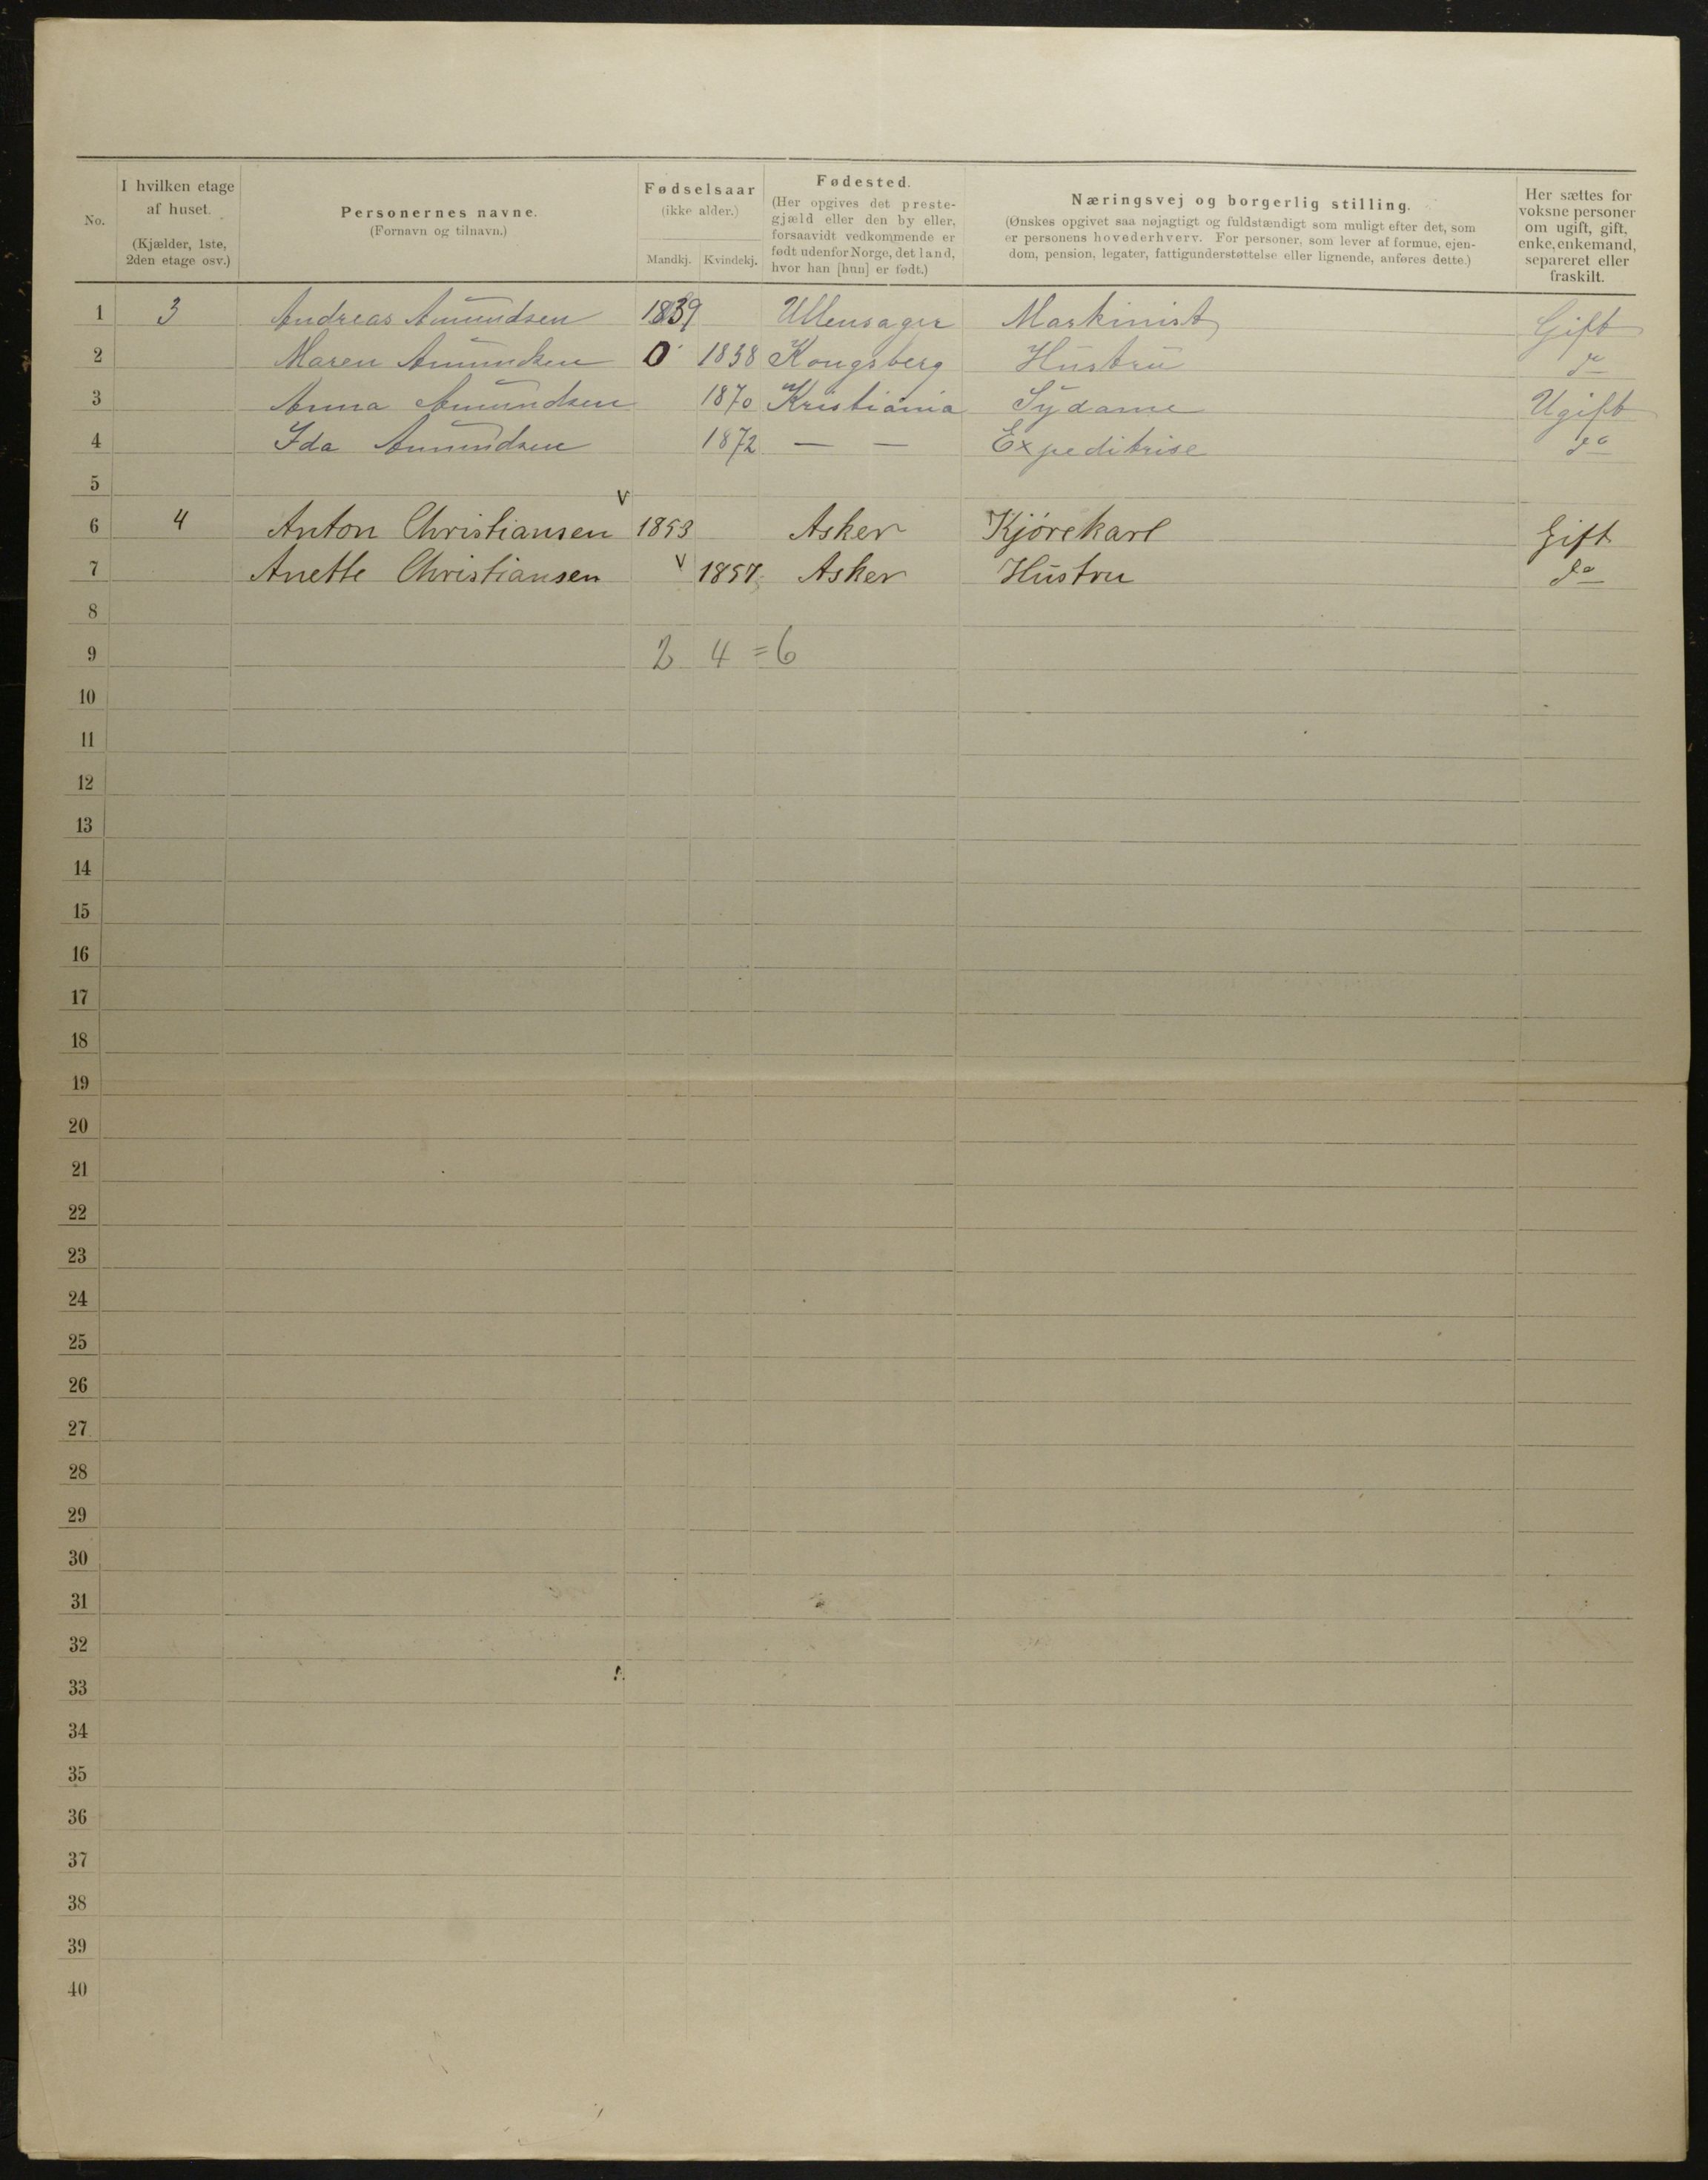 No.
I hvilken etage af huset. (Kjælder, 1ste, 2den etage osv.)
Personernes navne. (Fornavn og tilnavn.)
Fødselsaar (ikke alder.) Mandkj. Kvindekj.
Fødested. (Her opgives det prestegjæld eller den by eller, forsaavidt vedkommende er født udenfor Norge, det land, hvor han [hun] er født.)
Næringsvej og borgerlig stilling. (Ønskes opgivet saa nøjagtigt og fuldstændigt som muligt efter det, som er personens hovederhverv. For personer, som lever af formue, ejendom, pension, legater, fattigunderstøttelse eller lignende, anføres dette.)
Her sættes for voksne personer om ugift, gift, enke, enkemand, separeret eller fraskilt.
1 3 Andreas Amundsen 1839 Ullensager Maskinist Gift
2 Maren Amundsen 0 1838 Kongsberg Hustru do
3 Anna Amundsen 1870 Kristiania Sydame Ugift
4 Ida Amundsen 1872 — — Expeditrise do
5
6 4 Anton Christiansen v 1853 Asker Kjørekarl Gift
7 Anette Christiansen v 1857 Asker Hustru do
8
9 2 4 = 6
10
11
12
13
14
15
16
17
18
19
20
21
22
23
24
25
26
27
28
29
30
31
32
33
34
35
36
37
38
39
40